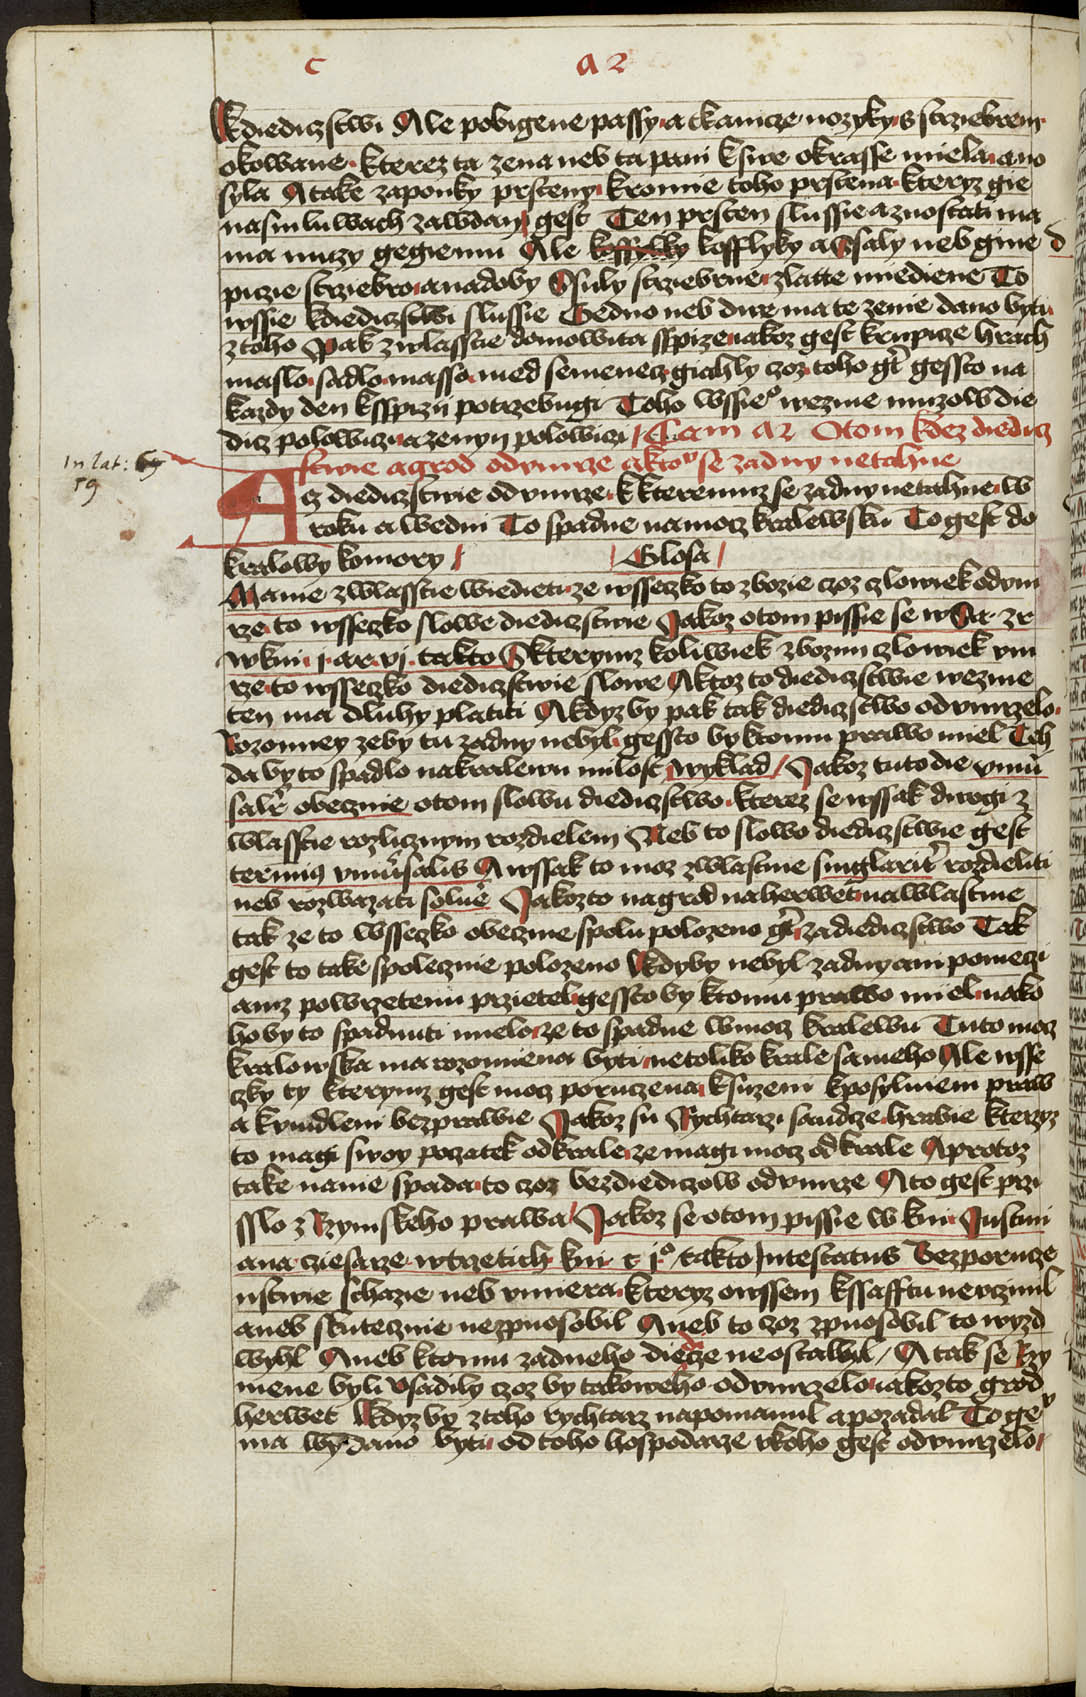 c a2
kdiedicztwi Ale pobigene passy a tkanicze nozyky s strziebrem
okowane kterez ta zena neb ta pani k swe okrasse miela a no
syla A take zaponky prsteny kromie toho prstena kteryz gie
na smluwach zawdany gest Ten prsten slussie a znostati ma
ma muzy gegiemu Ale kofflyky a Csaly neb gine d
pitzie strziebro a nadoby Csuly strziebrne zlatte miediene To
wssie kdiedicztwi slussie Gedno neb dwe ma te zenie dano byti
z toho Pak zwlasstie domowita sspize nakoz gest krupicze hrach
maslo sadlo masso med semenecz giahly czoz toho gt gessto na
kazdy den k sspizij potrzebugi Toho wssieo wezme muzow die
dicz polowiczi a zenyn polowici Cam a2 O tom kdez diedicz
In lat: 69
stwie a grod odumrze a kton se zadny netahne
59
Acz diedicztwie odumrze k kteremuz se zadny netahne w
roku a wedni To spadne na mocz kralewsku To gest do
kralowy komory Glosa
Mame zwlasstie wiedieti ze wsseczko to zbozie czoz czlowiek odum
rze to wsseczko slowe diedicztwie Jakoz o tom pissie se w Sa zr
w kni j ar vj takto S kterymz koliwiek zbozim czlowiek um
rze to wsseczko diedicztwie slowe A ktoz to diedicztwie wezme
ten ma dluhy platiti A kdyz by pak tak diedicztwo odumrzelo
Rozomiey ze by tu zadny nebyl gessto by k tomu prawo miel Teh
da by to spadlo na kralewu milost wyklad Jakoz tuto die vniu
salr obecznie o tom slowu diedicztwo kterez se wssak dwogi z
wlasstie rozlicznym rozdielem Neb to slowo diedicztwie gest
terminus vniusalis A wssak to moz zwlastnie singlarit rozdieliti
neb rozwazati solue Jakozto na grod na herwet na wlastnie
tak ze to wsseczko obecznie spolu polozeno gt za diedicztwo Tak
gest to take spolecznie polozeno Kdyby nebyl zadny ani po meczi
aniz po wrzetenu przietel gessto by k tomu prawo miel na ko
ho by to spadnuti mielo ze to spadne w mocz kralewu Tuto mocz
kralowska ma rozomiena byti ne toliko krale sameho Ale wsse
czky ty kterymz gest mocz poruczena k suzeni k posylnieni praw
a k zmidleni bezprawie Jakoz su Rychtarzi saudcze hrabie kteryz
to magi swoy poczatek od krale ze magi mocz od krale A protoz
take na nie spada to czoz bez diediczow odumrze A to gest przi
sslo z Rzymskeho prawa Jakoz se o tom pissie w kni Justini
ana ciesarze w trzetich kni t jo takto Intestatus Bez porucze
nstwie schazie neb umiera kteryz owssem k ssafftu neuczinil
aneb skutecznie nezpuosobil Aneb to czoz zpuosobil to wyzd
wyhl Aneb k tomu zadneho diedicze neostawil A tak se Rzy
miene byli usadily czoz by takoweho odumrzelo iakozto grod
herwet Kdyz by z toho rychtarz napomanul a pozadal To ge
ma wydano byti od toho hospodarze v koho gest odumrzelo